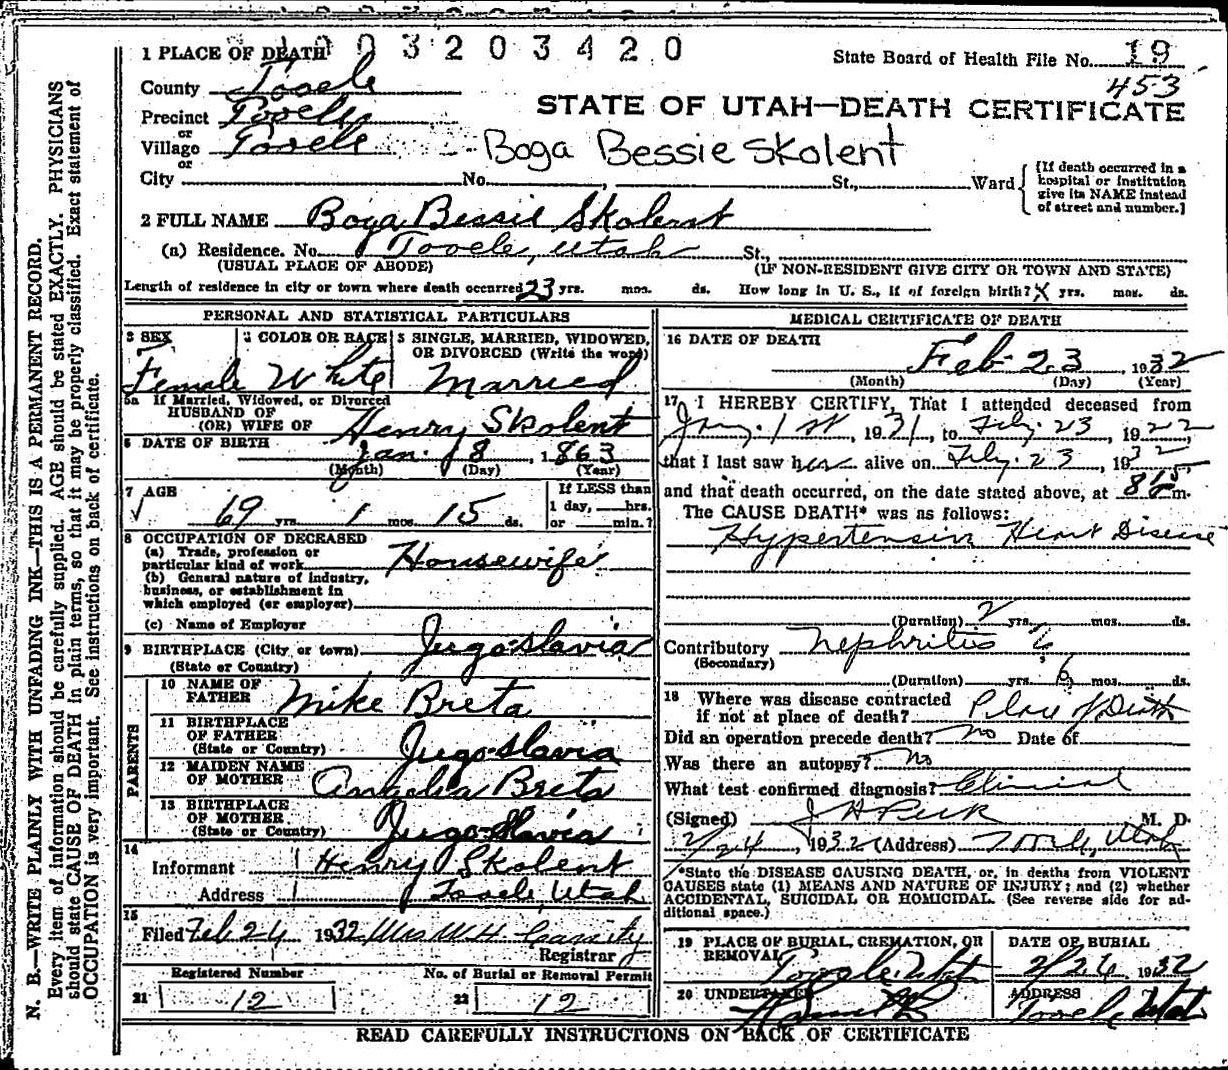 1003203420
1 PLACE OF DEATH
State Board of Health File No. 19
County Tooele
453
Precinct Tooele
STATE OF UTAH—DEATH CERTIFICATE
or
Village Tooele
Boga Bessie Skolent
or
City No. St., Ward
{If death occurred in a hospital or institution give its NAME instead of street and number.}
2 FULL NAME Boga Bessie Skolent
(a) Residence. No. Tooele, Utah St.,
(USUAL PLACE OF ABODE) (IF NON-RESIDENT GIVE CITY OR TOWN AND STATE)
Length of residence in city or town where death occurred 23 yrs. mos. ds. How long in U. S., if of foreign birth? X yrs. mos. ds.
PERSONAL AND STATISTICAL PARTICULARS
3 SEX 4 COLOR OR RACE 5 SINGLE, MARRIED, WIDOWED,
OR DIVORCED (Write the word)
Female White Married
5a If Married, Widowed, or Divorced
HUSBAND OF
(OR) WIFE OF Henry Skolent
6 DATE OF BIRTH Jan. 8, 1863
(Month) (Day) (Year)
7 AGE If LESS than
1 day, hrs.
69 yrs. 1 mos. 15 ds. or min.?
8 OCCUPATION OF DECEASED
(a) Trade, profession or
particular kind of work Housewife
(b) General nature of industry,
business, or establishment in
which employed (or employer)
(c) Name of Employer
9 BIRTHPLACE (City or town) Jugo-slavia
(State or Country)
PARENTS
10 NAME OF
FATHER Mike Breta
11 BIRTHPLACE
OF FATHER
(State or Country) Jugo-slavia
12 MAIDEN NAME
OF MOTHER Angelia Breta
13 BIRTHPLACE
OF MOTHER
(State or Country) Jugo-slavia
14
Informant Henry Skolent
Address Tooele, Utah
15
Filed Feb 24 1932 Mrs W H
Registrar
Registered Number No. of Burial or Removal Permit
21 12 22 12
MEDICAL CERTIFICATE OF DEATH
16 DATE OF DEATH
Feb 23, 1932
(Month) (Day) (Year)
17 I HEREBY CERTIFY, That I attended deceased from
Jany. 1st, 1931, to Feby. 23, 1922
that I last saw her alive on Feby. 23, 1932
and that death occurred, on the date stated above, at 8 15 P m.
The CAUSE DEATH* was as follows:
Hypertensive Heart Disease
(Duration) 2 yrs. mos. ds.
Contributory Nephritis
(Secondary)
(Duration) yrs. 6 mos. ds.
18 Where was disease contracted
if not at place of death? Place of Death
Did an operation precede death? No Date of
Was there an autopsy? No
What test confirmed diagnosis? Clinical
(Signed) J H Peck M. D.
2/24, 1932 (Address) Tooele, Utah
*State the DISEASE CAUSING DEATH, or, in deaths from VIOLENT
CAUSES state (1) MEANS AND NATURE OF INJURY; and (2) whether
ACCIDENTAL, SUICIDAL OR HOMICIDAL. (See reverse side for ad-
ditional space.)
19 PLACE OF BURIAL, CREMATION, OR
REMOVAL Tooele Utah
DATE OF BURIAL
2/26 1932
20 UNDERTAKER
ADDRESS
Tooele Utah
READ CAREFULLY INSTRUCTIONS ON BACK OF CERTIFICATE
N. B.—WRITE PLAINLY WITH UNFADING INK—THIS IS A PERMANENT RECORD.
Every item of information should be carefully supplied. AGE should be stated EXACTLY. PHYSICIANS
should state CAUSE OF DEATH in plain terms, so that it may be properly classified. Exact statement of
OCCUPATION is very important. See instructions on back of certificate.